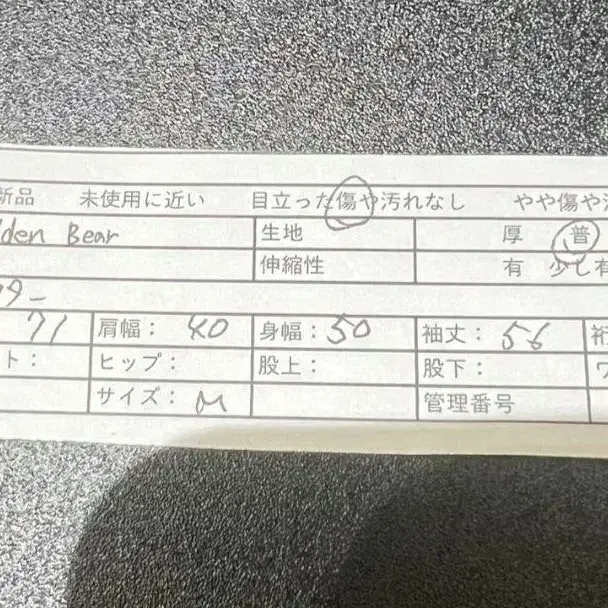 新品 未使用に近い 目立った傷や汚れなし やや傷や汚
lden Bear 生地 厚 普
伸縮性 有 少し有
ター
71 肩幅: 40 身幅: 50 袖丈: 56 裄
ト: ヒップ: 股上: 股下: ワ
サイズ: M 管理番号